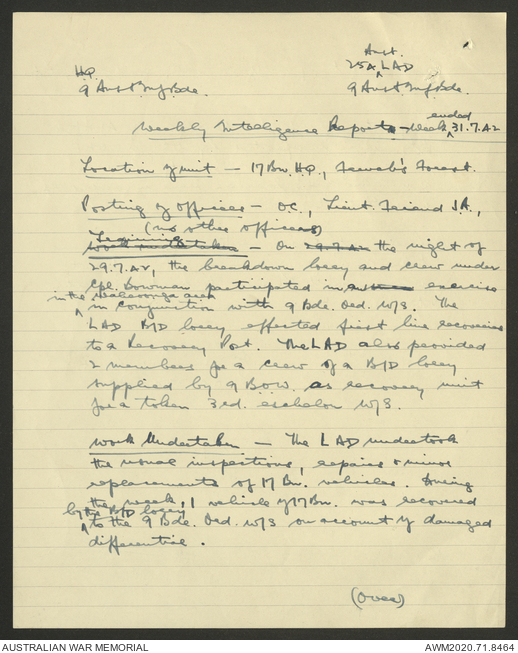 Aust.
H.Q. 25A LAD
9 Aust Inf Bde. 9 Aust Inf Bde.
Weekly Intelligence Report - week ended 31.7.42
Location of unit - 17 Bn. H.Q., Forest.
Posting of Officers - O.C., Lieut. J.A.,
(no other officers)
Training
work undertaken - On 29.7.42 the night of
29.7.42, the breakdown lorry and crew under
Cpl. Bowman participated in exercise
in the area
in conjunction with 9 Bde. Ord. W/S. The
LAD B/D lorry effected first line recoveries
to a Recovery Post. The LAD also provided
2 members for a crew of a B/D lorry
supplied by 9 BOW. as recovery unit
for a token 3rd. eschelon W/S.
Work Undertaken - The LAD undertook
the usual inspections, repairs & minor
replacements of 17 Bn. vehicles. During
the week, 1 vehicle of 17 Bn. was recovered
by the B/D lorry
to the 9 Bde. Ord. W/S on account of damaged
differential.
(Over)
AUSTRALIAN WAR MEMORIAL AWM2020.71.8464